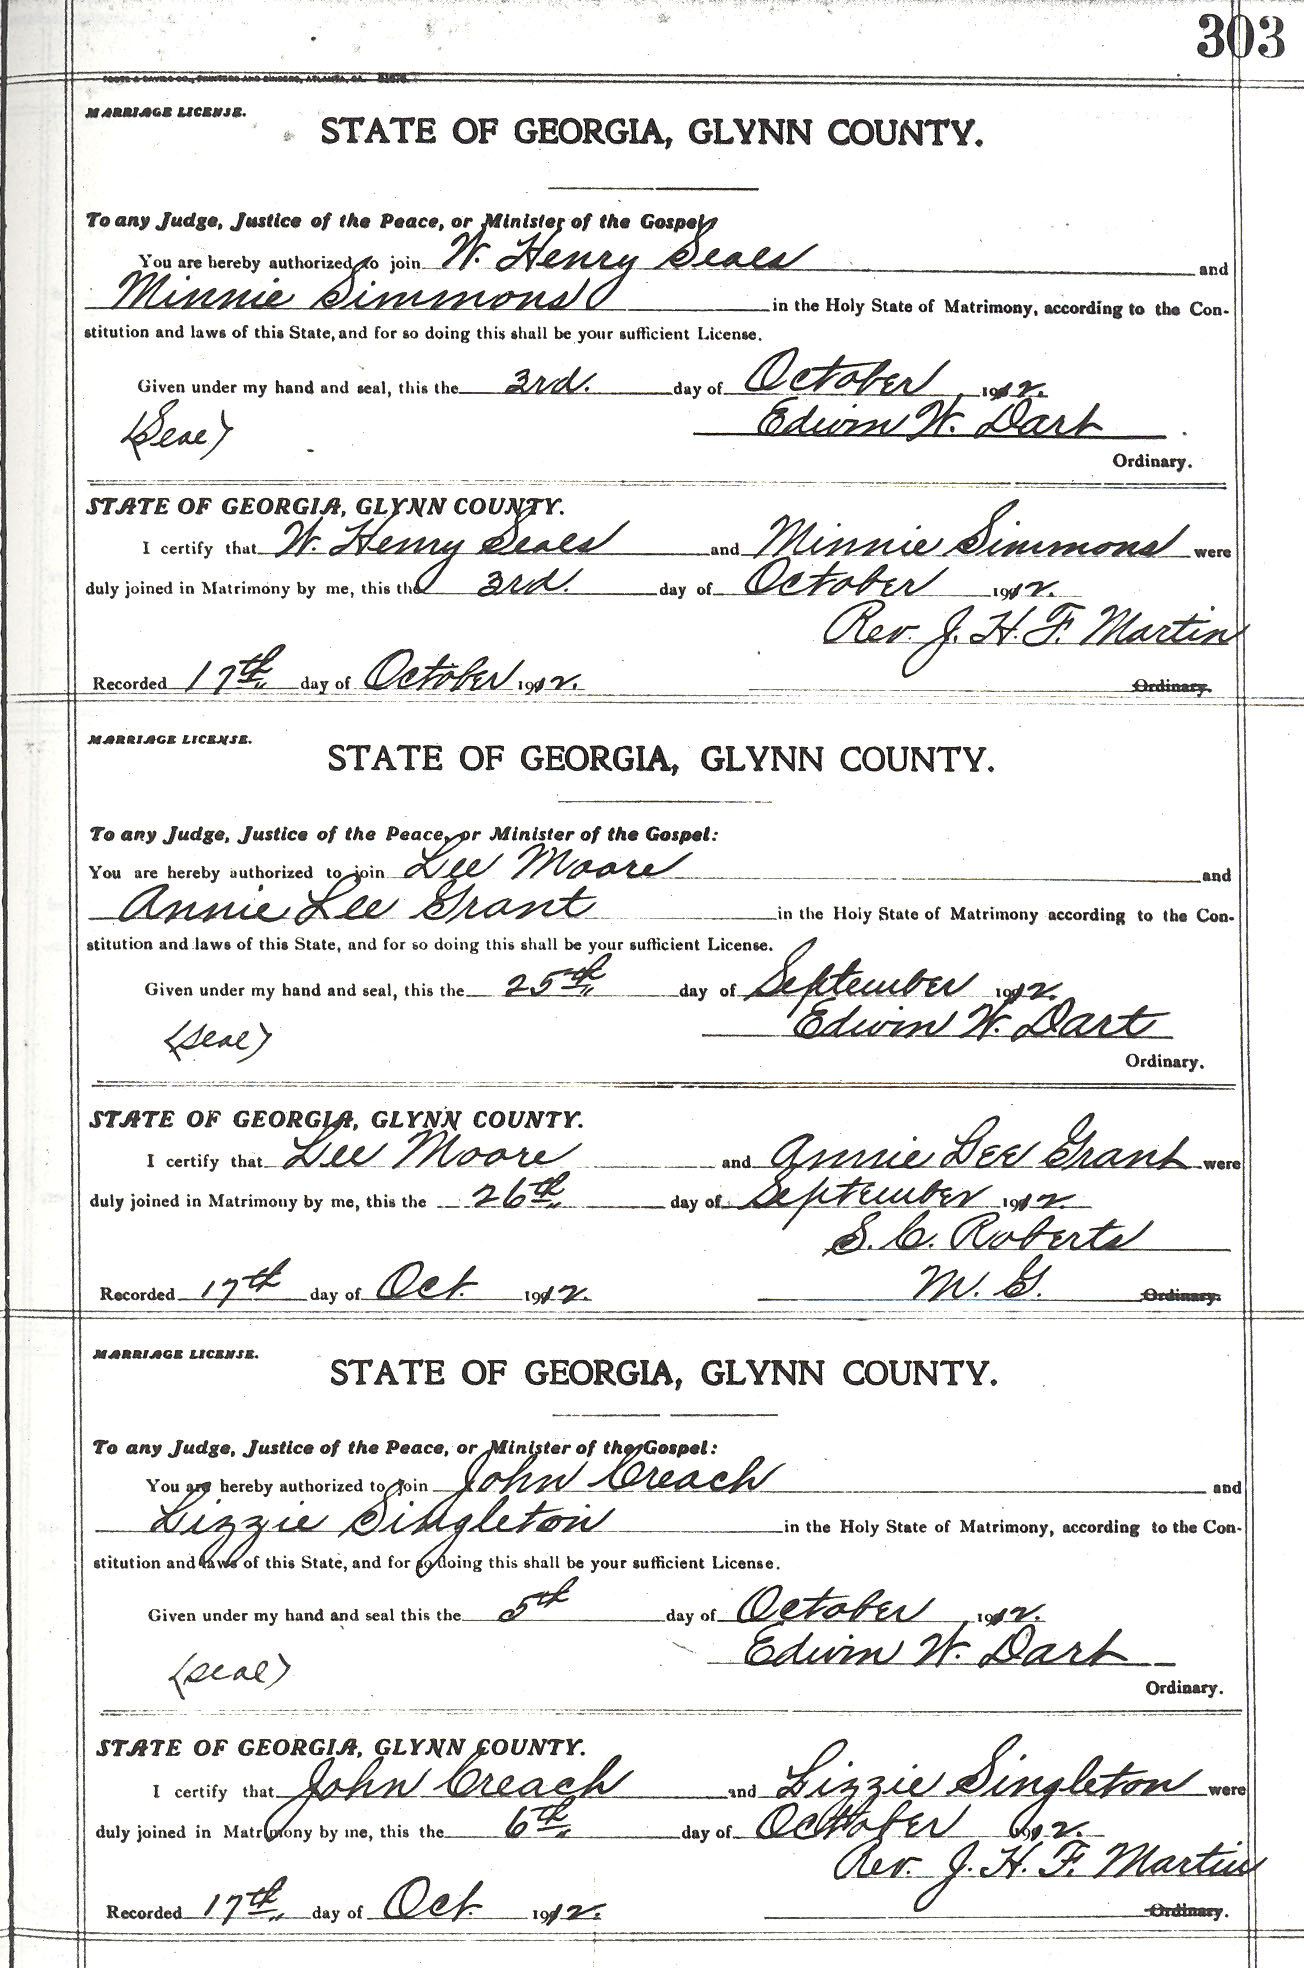 303
FOOTE & DAVIES CO., PRINTERS AND BINDERS, ATLANTA, GA.
MARRIAGE LICENSE.
STATE OF GEORGIA, GLYNN COUNTY.
To any Judge, Justice of the Peace, or Minister of the Gospel:
You are hereby authorized to join W. Henry Seals and
Minnie Simmons in the Holy State of Matrimony, according to the Con-
stitution and laws of this State, and for so doing this shall be your sufficient License.
Given under my hand and seal, this the 3rd. day of October 1912.
(Seal) Edwin W. Dart
Ordinary.
STATE OF GEORGIA, GLYNN COUNTY.
I certify that W. Henry Seals and Minnie Simmons were
duly joined in Matrimony by me, this the 3rd. day of October 1912.
Rev. J. H. F. Martin
Recorded 17th day of October 1912. Ordinary.
MARRIAGE LICENSE.
STATE OF GEORGIA, GLYNN COUNTY.
To any Judge, Justice of the Peace, or Minister of the Gospel:
You are hereby authorized to join Lee Moore and
Annie Lee Grant in the Holy State of Matrimony according to the Con-
stitution and laws of this State, and for so doing this shall be your sufficient License.
Given under my hand and seal, this the 25th day of September 1912.
(seal) Edwin W. Dart
Ordinary.
STATE OF GEORGIA, GLYNN COUNTY.
I certify that Lee Moore and Annie Lee Grant were
duly joined in Matrimony by me, this the 26th day of September 1912.
S. C. Roberts
Recorded 17th day of Oct. 1912. M. G. Ordinary.
MARRIAGE LICENSE.
STATE OF GEORGIA, GLYNN COUNTY.
To any Judge, Justice of the Peace, or Minister of the Gospel:
You are hereby authorized to join John Creach and
Lizzie Singleton in the Holy State of Matrimony, according to the Con-
stitution and laws of this State, and for so doing this shall be your sufficient License.
Given under my hand and seal this the 5th day of October, 1912.
(seal) Edwin W. Dart
Ordinary.
STATE OF GEORGIA, GLYNN COUNTY.
I certify that John Creach and Lizzie Singleton were
duly joined in Matrimony by me, this the 6th day of October 1912.
Rev. J. H. F. Martin
Recorded 17th day of Oct. 1912. Ordinary.